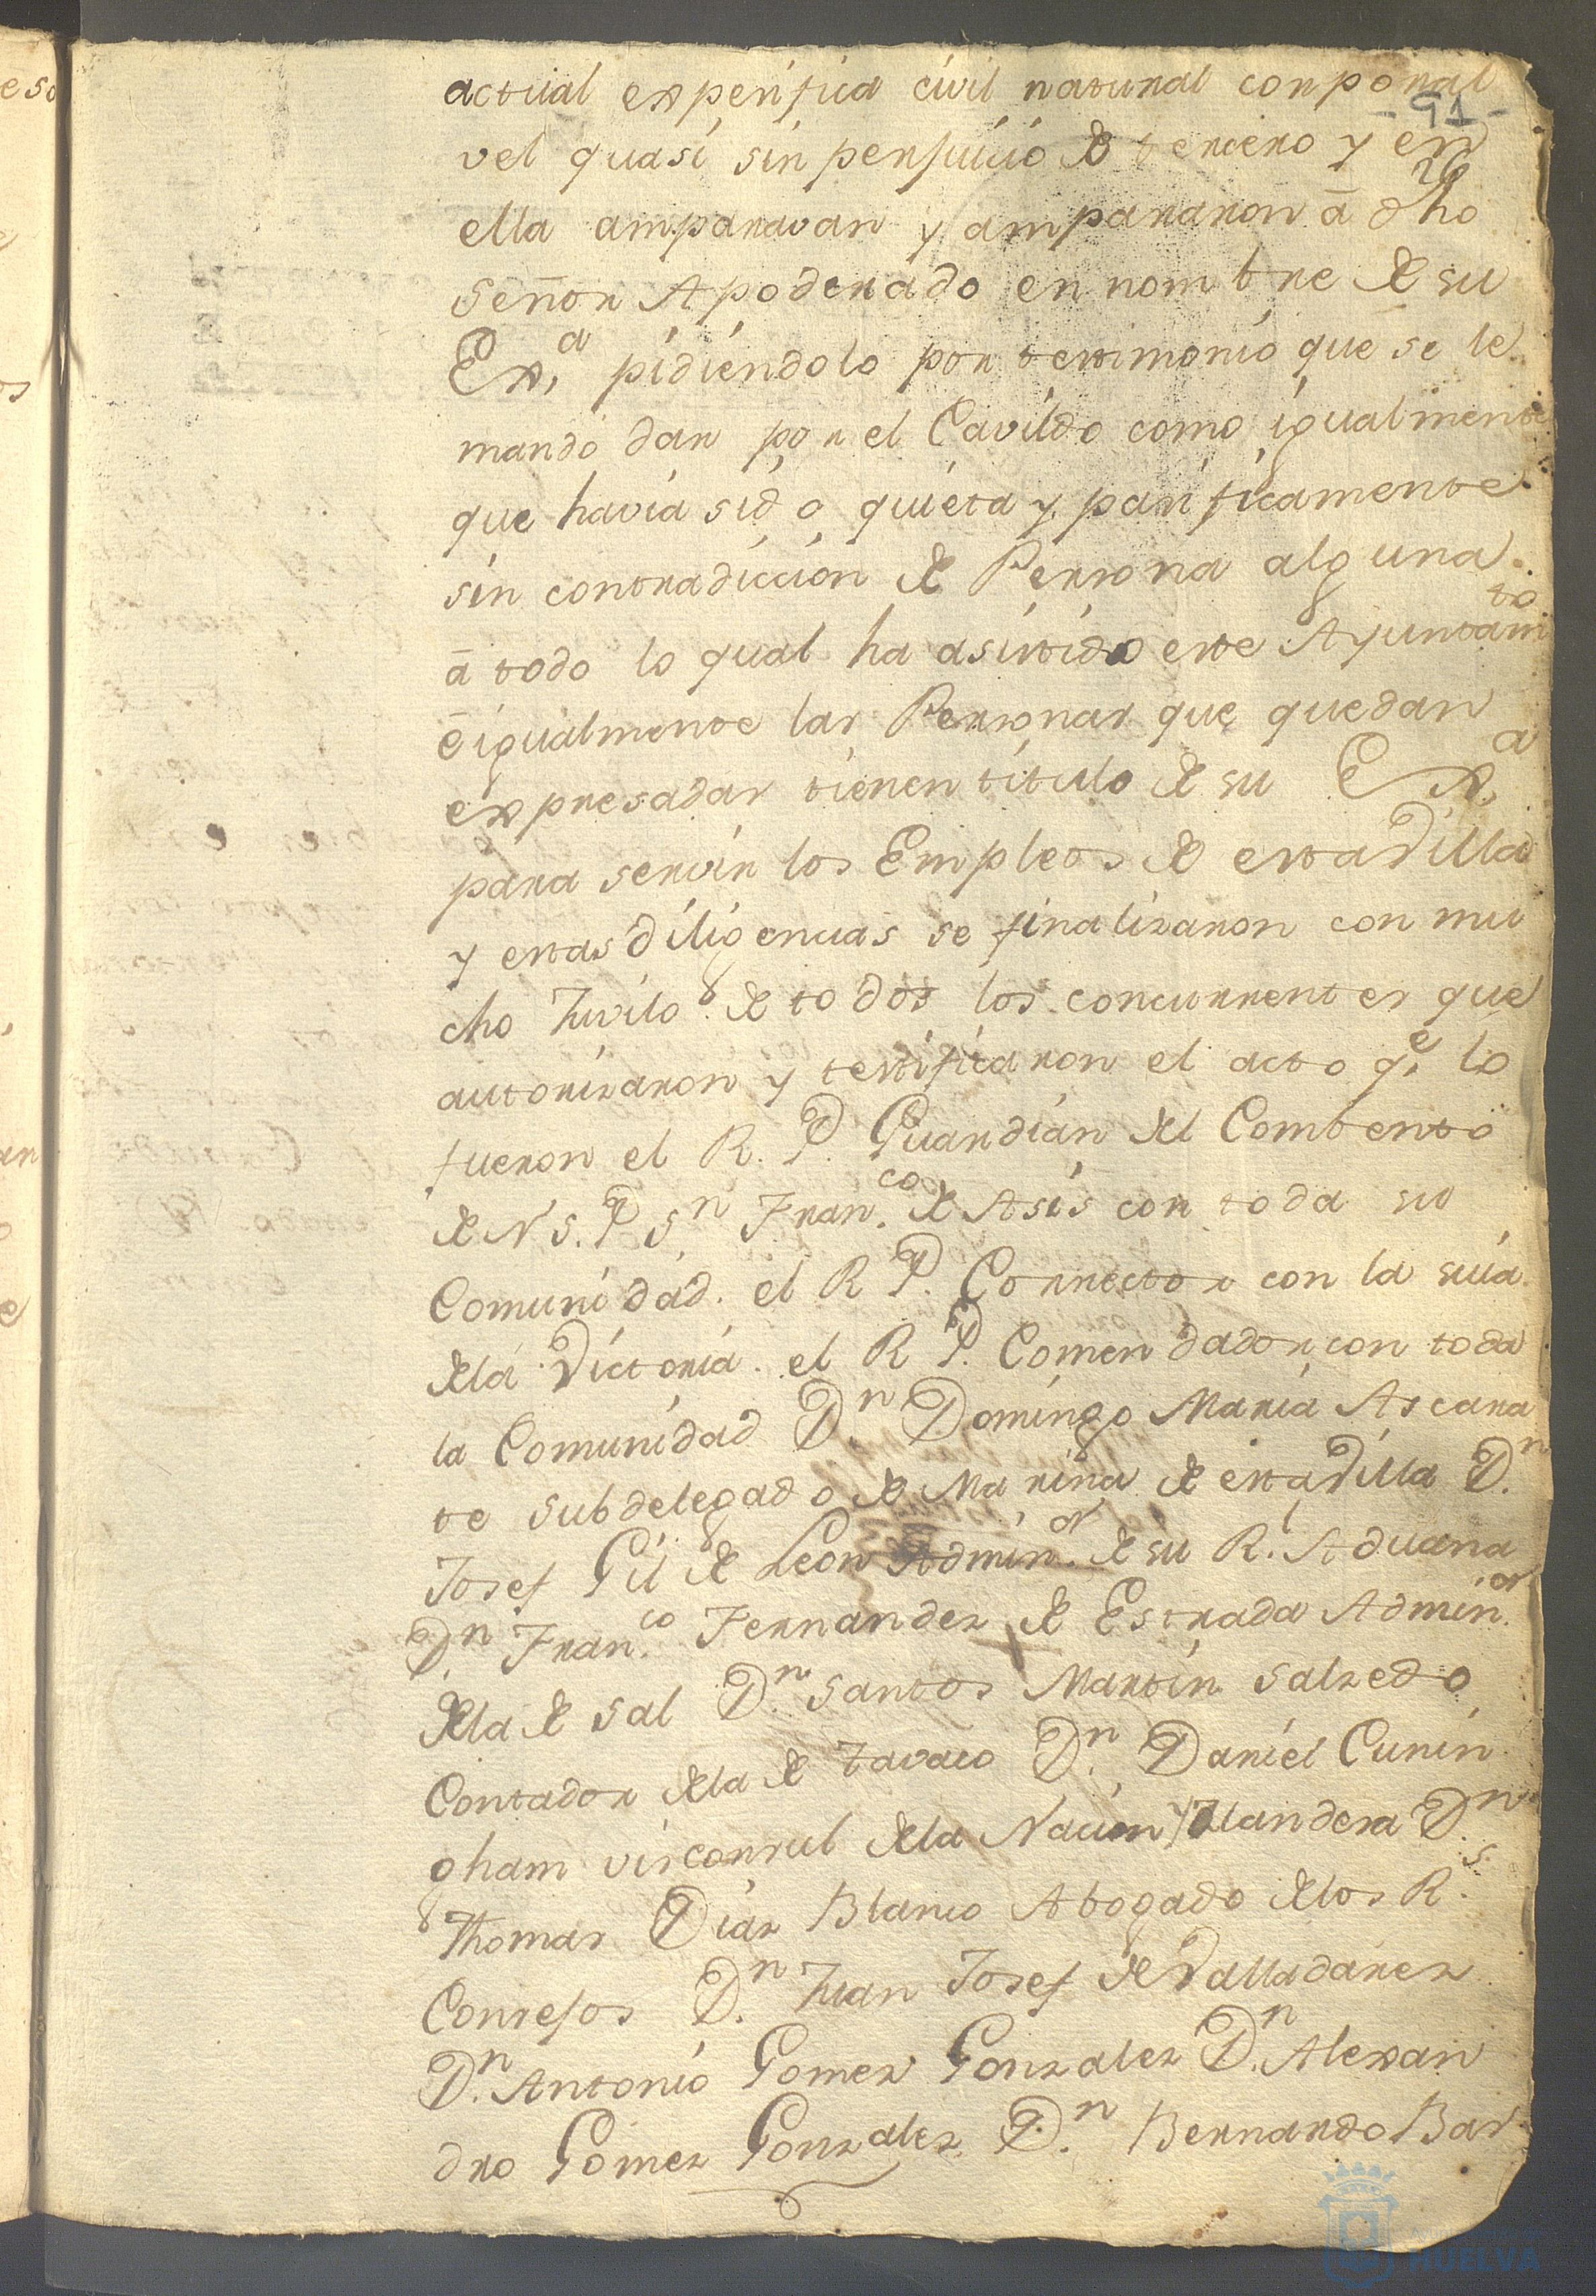 actual experifica civil natural corporal
- 91 -
vel quasi sin perjuicio de tercero y en
26
ella amparavan y ampararon ā dho
Señor Apoderado en nombre de su
Ex.ª pidiendolo por testimonio que se le
mando dar por el Cavildo como igualmente
que havia sido quieta y parificamente
sin contradiccion de Persona alguna
ā todo lo qual ha asistido este Ayuntamto
ē igualmente las Personas que quedan
expresadas tienen titulo de su Ex.ª
para servir los Empleos de esta Villa
y estas diligencias se finalizaron con mu
cho Juvilo de todos los concurrentes que
autorizaron y testificaron el acto q.e lo
fueron el R. P. Guardian del Combento
de N S. P S.n Fran.co de Asis con toda su
Comunidad. el R P. Corrector con la suia
de la Victoria. el R P. Comendador con toda
la Comunidad D.n Domingo Maria Ascara
te subdelegado de Marina de esta Villa D.n
Josef Gil de Leon Admin.or de su R.l Aduana
D.n Fran.co Fernandez de Estrada Admin.or
de la de Sal D.n Santos Martin Salzedo
Contador de la de Tavaco D.n Daniel Cunin
gham visconsul de la Nacion Yrlandesa D.n
Thomas Diaz Blanco Abogado de los R.s
Consejos D.n Juan Josef de Valladares
D.n Antonio Gomez Gonzalez D.n Alexan
dro Gomez Gonzalez D.n Bernardo Bar
HUELVA